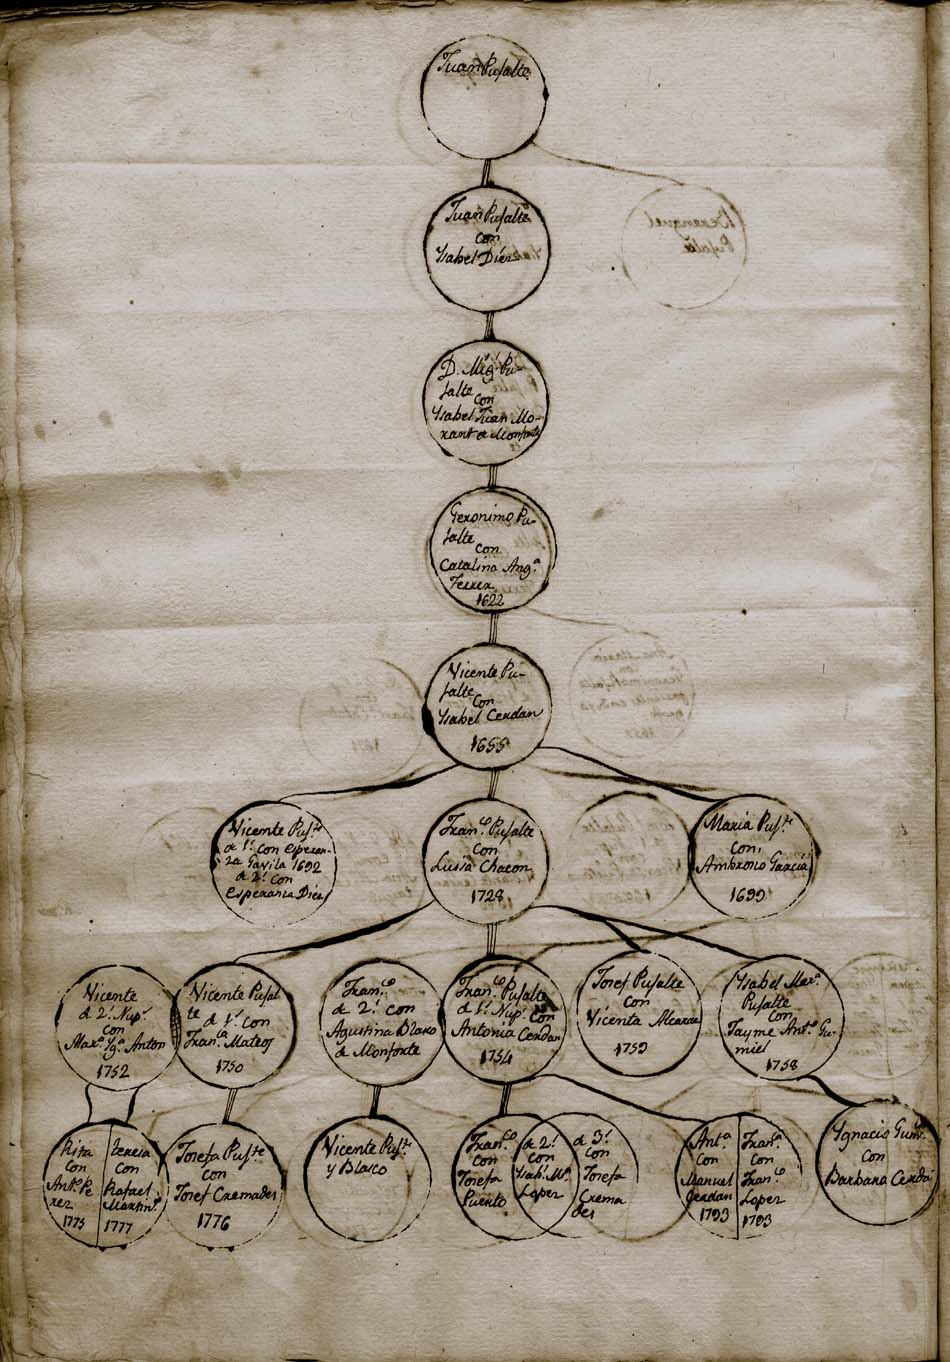 Juan Pujalte
Juan Pujalte
con
Ysabel Diez
D. Mig.l Pu-
jalte
con
Ysabel Juan Mo-
rant de Monforte
Geronimo Pu-
jalte
con
Catalina Ang.a
Ferrer
1622
Vicente Pu-
jalte
con
Ysabel Cerdan
1655
Vicente Puj.te
de 1.s con Esperan-
za Gavila 1692
de 2.s con
Esperanza Diez
Fran.co Pujalte
con
Luisa Chacon
1728
Maria Puj.te
con
Ambrosio Garcia
1699
Vicente
de 2.s Nup.s
con
Mar.a Yg.a Anton
1752
Vicente Pujal
te
de 1.s con
Fran.ca Mateos
1750
Fran.co
de 2.s con
Agustina Blasco
de Monforte
Fran.co Pujalte
de 1.s Nup.s con
Antonia Cerdan
1754
Josef Pujalte
con
Vicenta Alcaraz
1759
Ysabel Mar.a
Pujalte
con
Jayme Ant.o Gu-
miel
1758
Rita
con
Ant.o Pe
rez
1775
Teresa
con
Rafael
Martin.z
1777
Josefa Puj.te
con
Josef Cremades
1776
Vicente Puj.te
y Blasco
Fran.co
con
Josefa
Puerto
de 2.s
con
Ysab.l M.a
Lopez
de 3.s
con
Josefa
Crema
des
Ant.a
con
Manuel
Cerdan
1793
Fran.ca
con
Fran.co
Lopez
1793
Ygnacio Gum.l
con
Barbara Cerdá
Berenguel
Pujalte